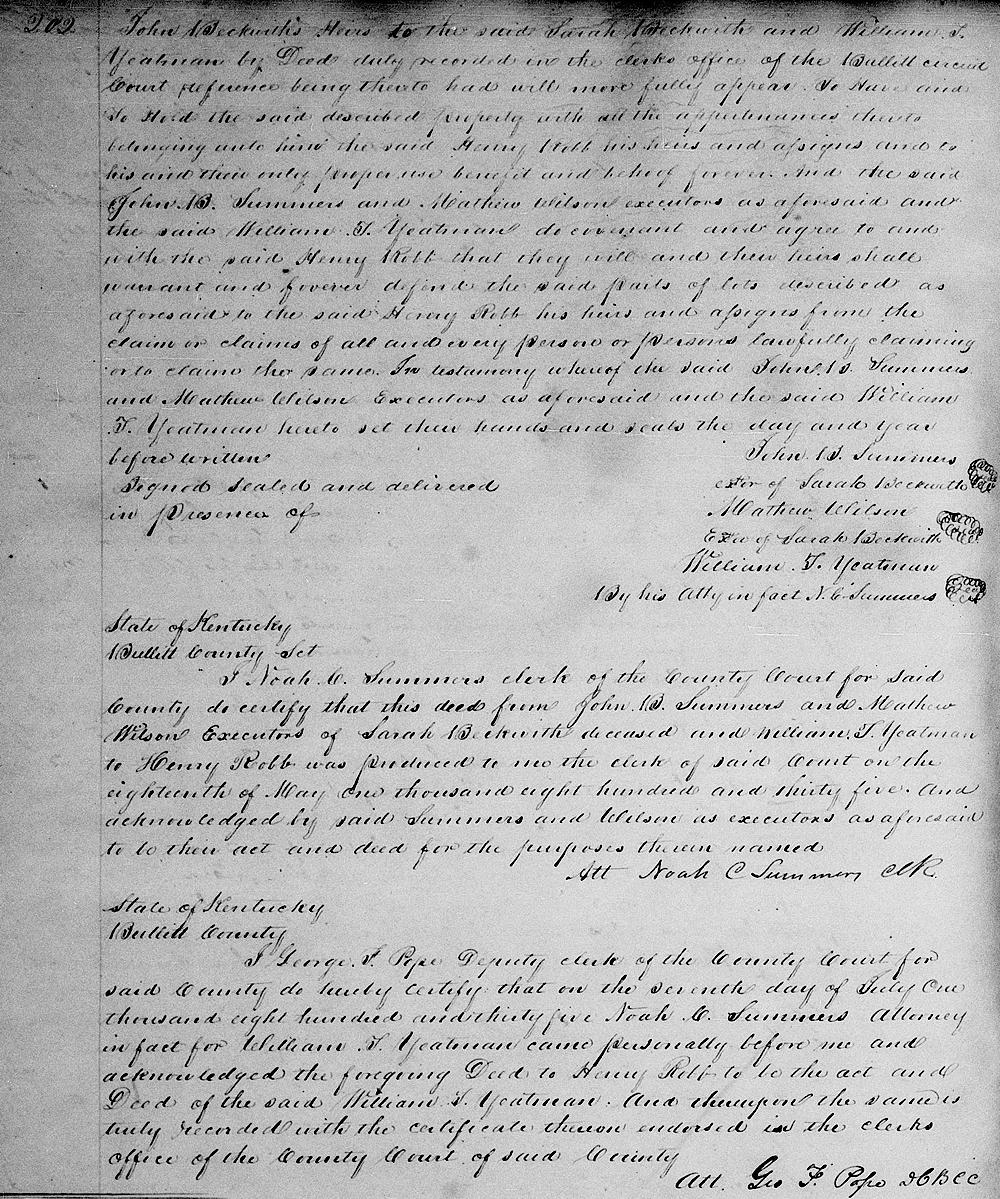 202
John Beckwith's Heirs to the said Sarah Beckwith and William T.
Yeatman by Deed duly recorded in the clerks office of the Bullitt circuit
Court reference being thereto had will more fully appear. To Have and
To Hold the said described property with all the appertenances thereto
belonging unto him the said Henry Robb his heirs and assigns and to
his and their only proper use benefit and behoof forever. And the said
John B. Summers and Mathew Wilson executors as aforesaid and
the said William T. Yeatman do covenant and agree to and
with the said Henry Robb that they will and their heirs shall
warrant and forever defend the said parts of lots described as
aforesaid to the said Henry Robb his heirs and assigns from the
claim or claims of all and every person or persons lawfully claiming
or to claim the same. In testimony whereof the said John B. Summers
and Mathew Wilson Executors as aforesaid and the said William
T. Yeatman hereto set their hands and seals the day and year
before written
John B. Summers
Signed sealed and delivered
exor of Sarah Beckwith
in presence of
Mathew Wilson
Exor of Sarah Beckwith
William T. Yeatman
By his Atty in fact N. C. Summers
State of Kentucky
Bullitt County Sct
I Noah C. Summers clerk of the County Court for said
County do certify that this deed from John B. Summers and Mathew
Wilson Executors of Sarah Beckwith deceased and William T. Yeatman
to Henry Robb was produced to me the clerk of said Court on the
eighteenth of May One thousand eight hundred and thirty five. And
acknowledged by said Summers and Wilson as executors as aforesaid
to be their act and deed for the purposes therein named
Att Noah C Summers Clk.
State of Kentucky
Bullitt County
I George F. Pope Deputy clerk of the County Court for
said County do hereby certify that on the seventh day of July One
thousand eight hundred and thirty five Noah C. Summers Attorney
in fact for William T. Yeatman came personally before me and
acknowledged the foregoing Deed to Henry Robb to be the act and
Deed of the said William T. Yeatman. And thereupon the same is
truly recorded with the certificate thereon endorsed in the clerks
office of the County Court of said County
Att. Geo F. Pope DCBCC